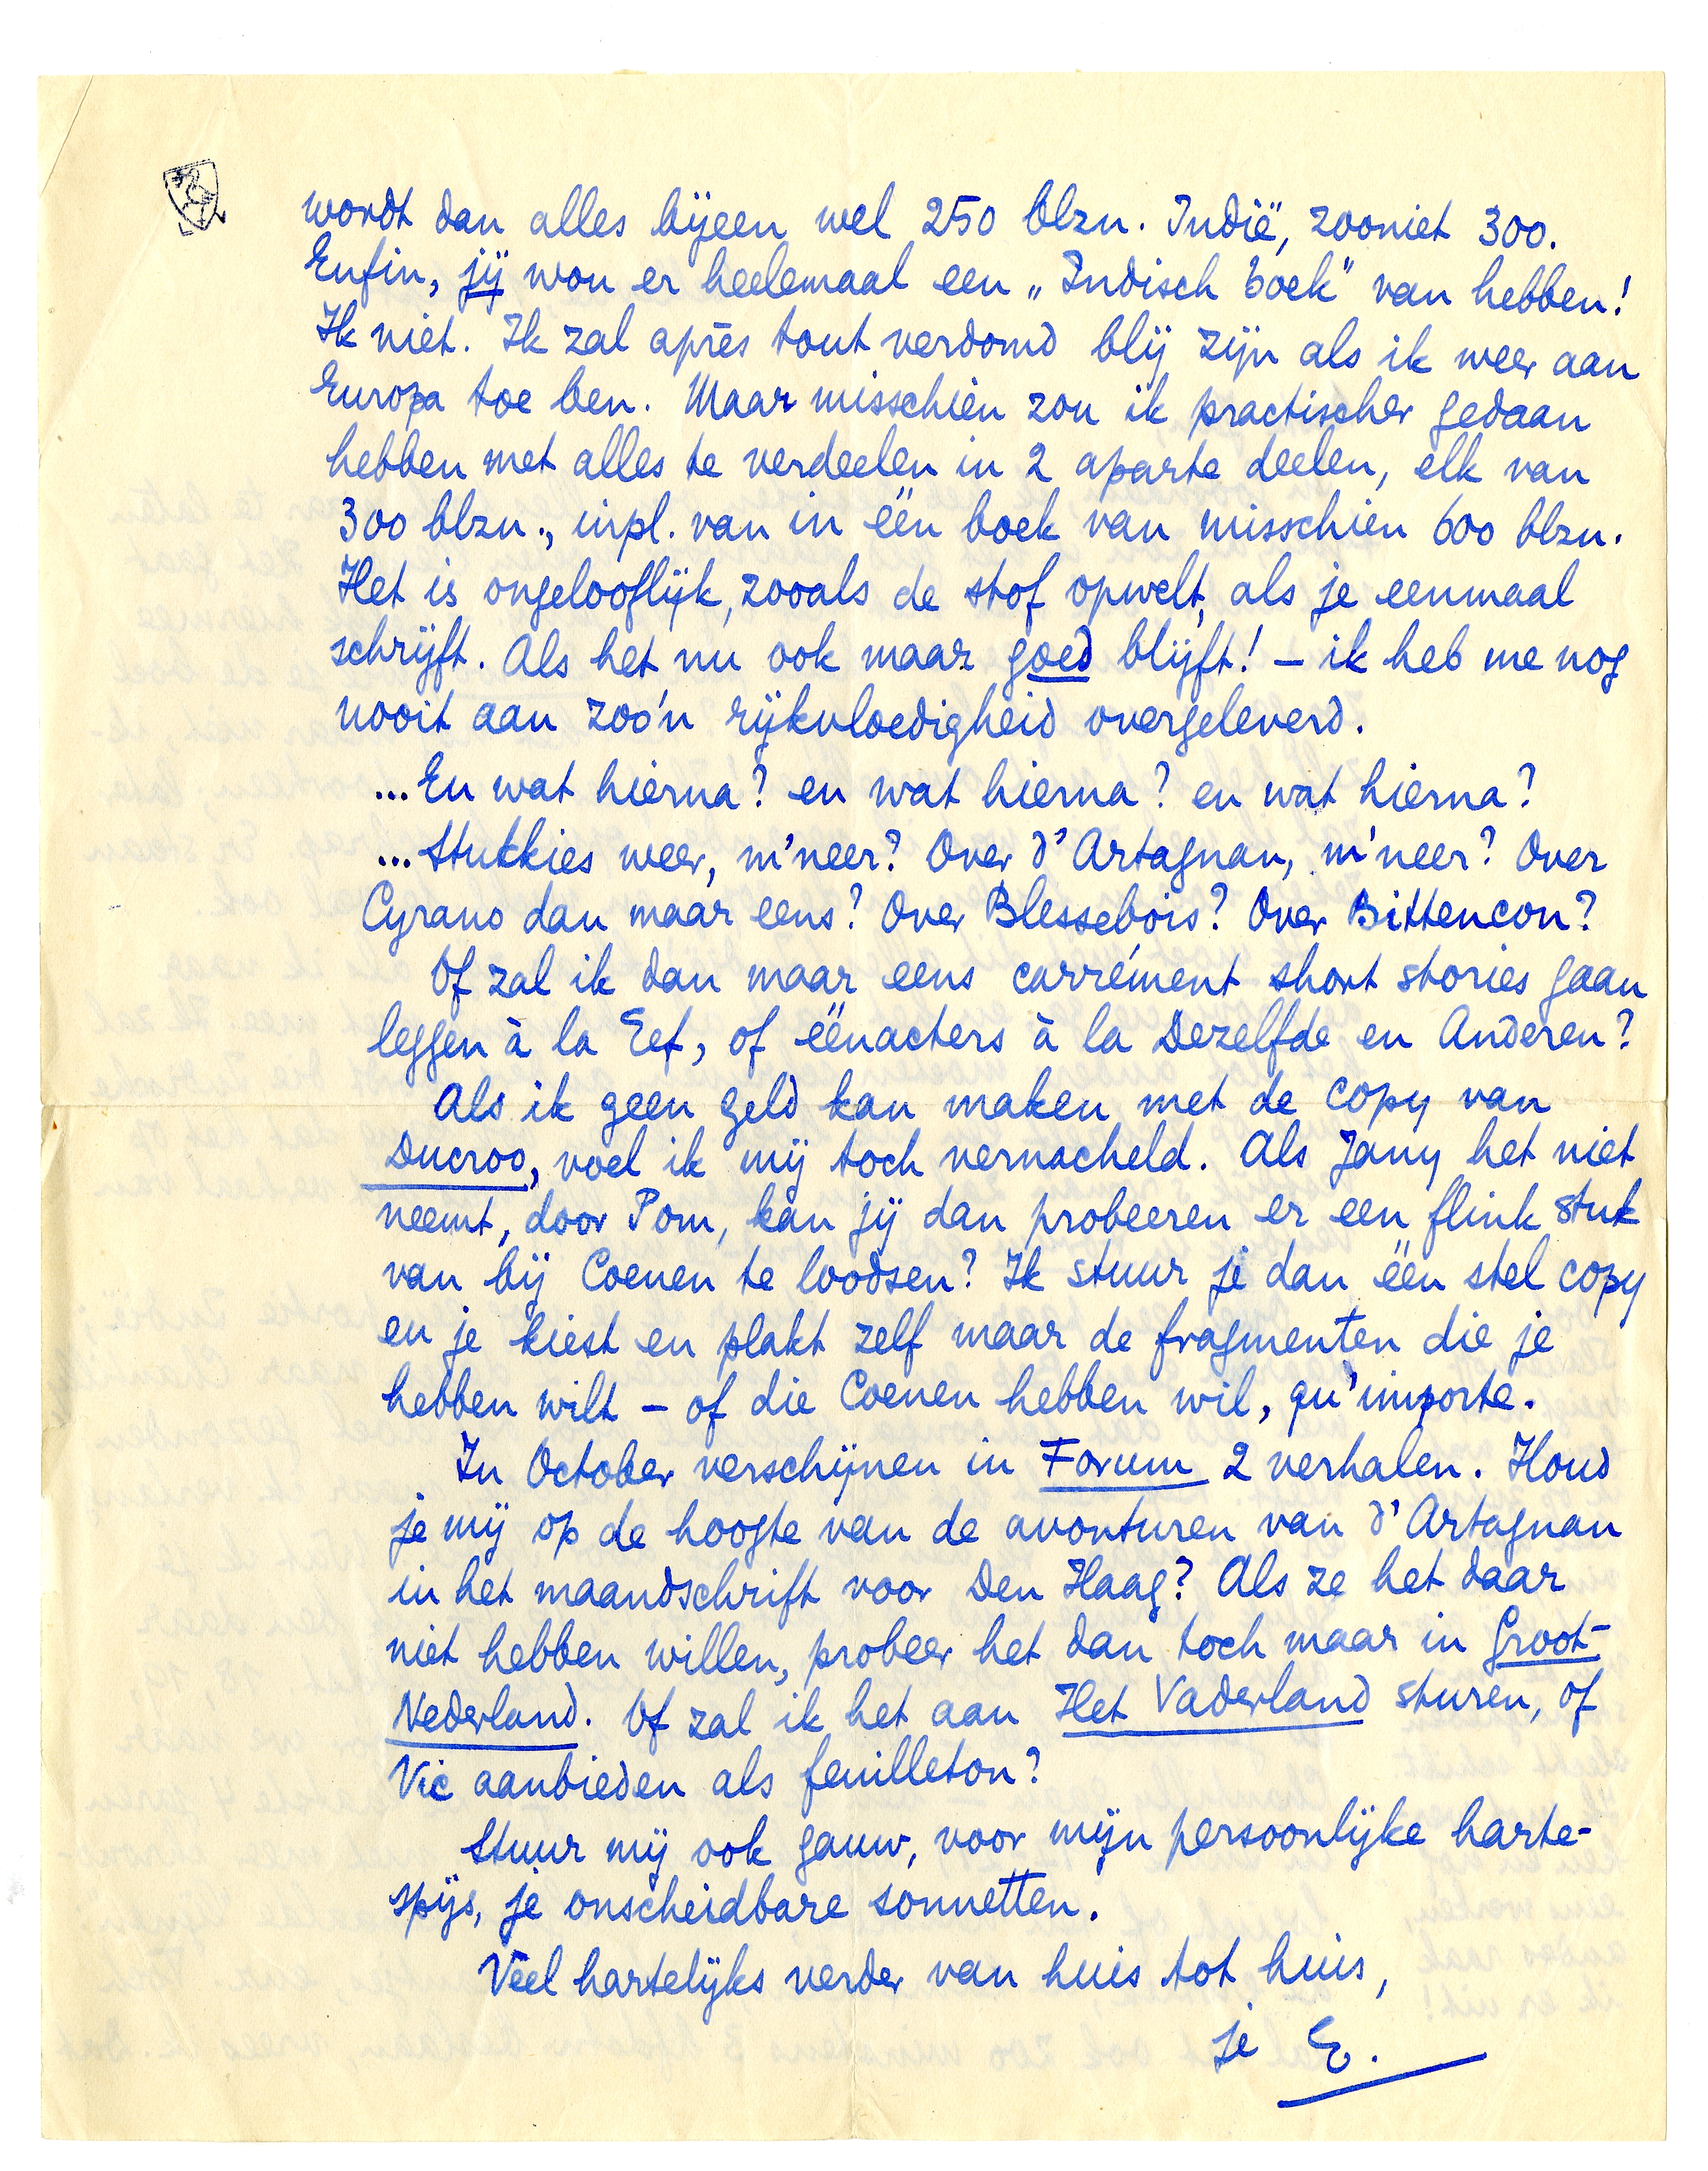 wordt dan alles bijeen wel 250 blzn. Indië, zooniet 300.
Enfin, jij wou er heelemaal een „Indisch boek" van hebben!
Ik niet. Ik zal après tout verdomd blij zijn als ik weer aan
Europa toe ben. Maar misschien zou ik practischer gedaan
hebben met alles te verdeelen in 2 aparte deelen, elk van
300 blzn., inpl. van in één boek van misschien 600 blzn.
Het is ongelooflijk, zooals de stof opwelt, als je eenmaal
schrijft. Als het nu ook maar goed blijft! – ik heb me nog
nooit aan zoo'n rijkvloedigheid overgeleverd.
...En wat hierna? en wat hierna? en wat hierna?
...Stukkies weer, m'neer? Over d'Artagnan, m'neer? Over
Cyrano dan maar eens? Over Blessebois? Over Bittencou?
Of zal ik dan maar eens carrément short stories gaan
leggen à la Eef, of éénacters à la Dezelfde en Anderen?
Als ik geen geld kan maken met de copy van
Ducroo, voel ik mij toch vernacheld. Als Jany het niet
neemt, door Pom, kan jij dan probeeren er een flink stuk
van bij Coenen te loodsen? Ik stuur je dan één stel copy
en je kiest en plakt zelf maar de fragmenten die je
hebben wilt – of die Coenen hebben wil, qu'importe.
In October verschijnen in Forum 2 verhalen. Houd
je mij op de hoogte van de avonturen van d'Artagnan
in het maandschrift voor Den Haag? Als ze het daar
niet hebben willen, probeer het dan toch maar in Groot-
Nederland. Of zal ik het aan Het Vaderland sturen, of
Vic aanbieden als feuilleton?
Stuur mij ook gauw, voor mijn persoonlijke harte-
spijs, je onscheidbare sonnetten.
Veel hartelijks verder van huis tot huis,
je E.